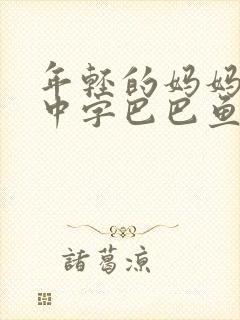 年轻的妈妈
中字巴巴鱼
諸葛凉